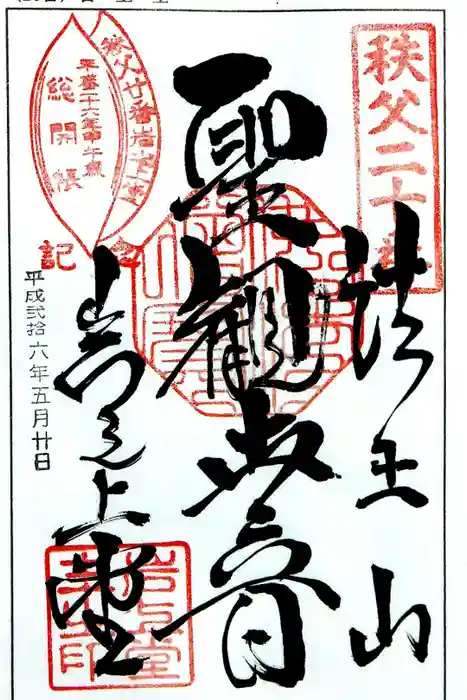 秩父二十番
法王山
聖観世音
岩之上堂
秩父廿番岩之上堂
平成二十六年甲午歳
総開帳
記念
平成弐拾六年五月廿日